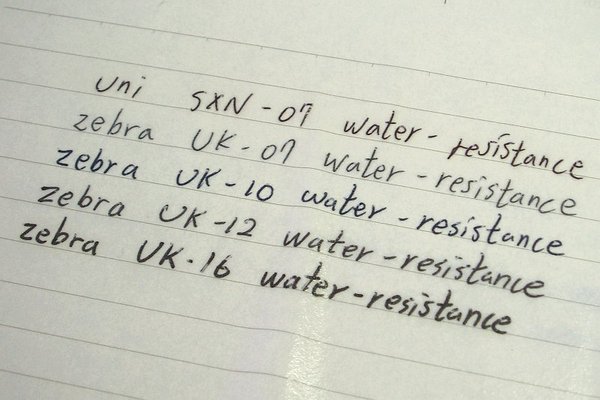 uni SXN-07 water-resistance
zebra UK-07 water-resistance
zebra UK-10 water-resistance
zebra UK-12 water-resistance
zebra UK-16 water-resistance